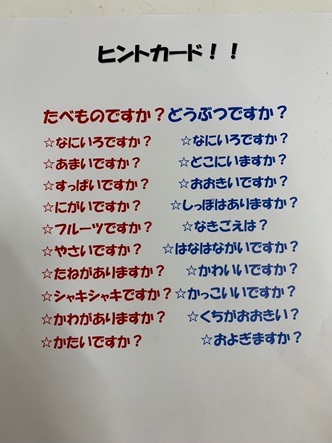 ヒントカード！！
たべものですか？ どうぶつですか？
☆なにいろですか？ ☆なにいろですか？
☆あまいですか？ ☆どこにいますか？
☆すっぱいですか？ ☆おおきいですか？
☆にがいですか？ ☆しっぽはありますか？
☆フルーツですか？ ☆なきごえは？
☆やさいですか？ ☆はなはながいですか？
☆たねがありますか？ ☆かわいいですか？
☆シャキシャキですか？ ☆かっこいいですか？
☆かわがありますか？ ☆くちがおおきい？
☆かたいですか？ ☆およぎますか？